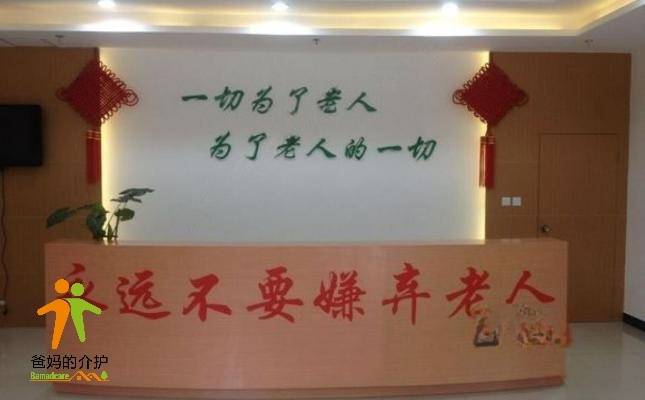 一切为了老人
为了老人的一切
永远不要嫌弃老人
爸妈的介护
Bamadcare